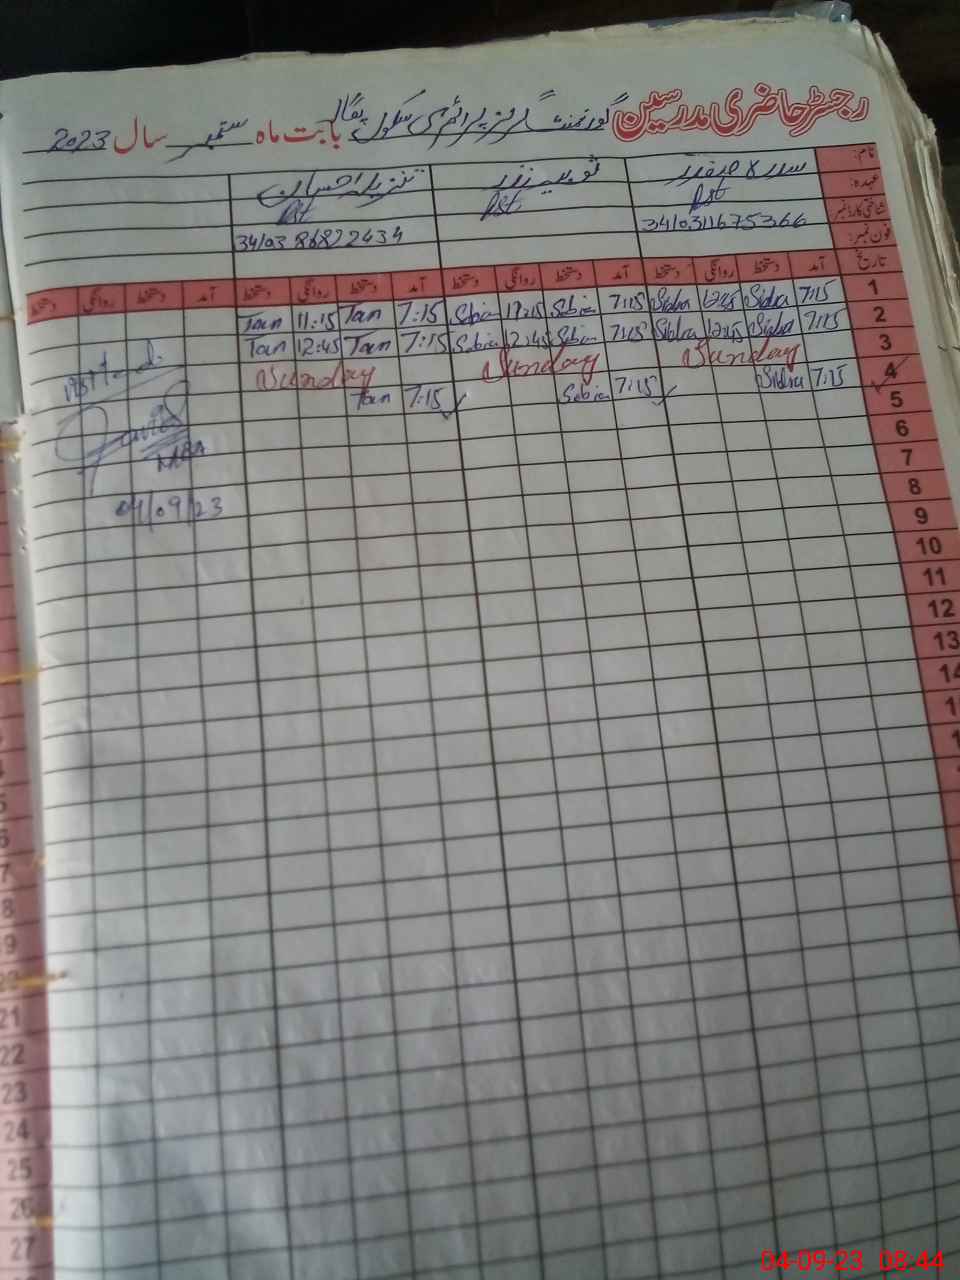 رجسٹر حاضری مدرسین گورنمنٹ گرلز پرائمری سکول بابت ماہ ستمبر سال 2023
نام: سدرہ صفدر
عہدہ: Pst Pst Pst
شناختی کارڈ نمبر 3410311675366
فون نمبر: 34103 86822434
تاریخ آمد دستخط روانگی دستخط آمد دستخط روانگی دستخط آمد دستخط روانگی دستخط آمد دستخط روانگی دستخط
1 7:15 Sidra 12:45 Sidra 7:15 Sobia Sobia 7:15 Tan 11:15 Tan
2 7:15 Sidra 12:45 Sidra 7:15 Sobia 12:45 Sobia 7:15 Tan 12:45 Tan
3 Sunday Sunday Sunday
4 7:15 Sidra 7:15 Sobia 7:15 Tan
5
6
7
8
9
10
11
12
13
04/09/23
21
22
23
24
25
26
27
04-09-23 08:44